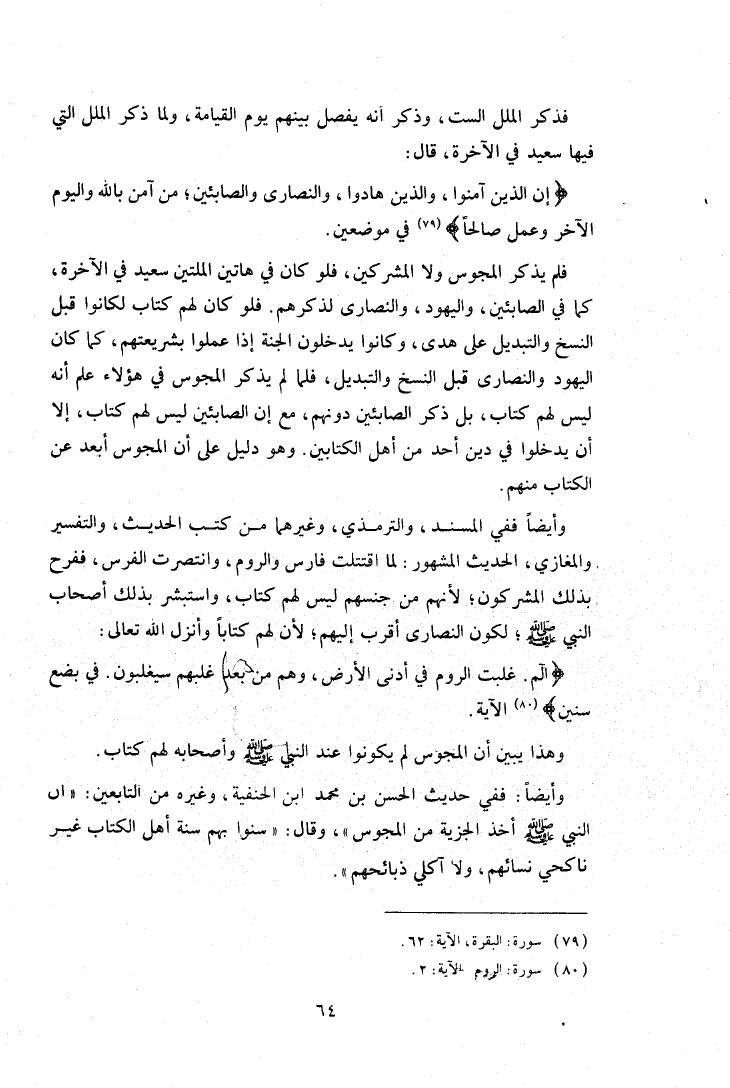 فذكر الملل الست، وذكر أنه يفصل بينهم يوم القيامة، ولما ذكر الملل التي
فيها سعيد في الآخرة، قال:
﴿إن الذين آمنوا، والذين هادوا، والنصارى والصابئين؛ من آمن بالله واليوم
الآخر وعمل صالحاً﴾ (٧٩) في موضعين.
فلم يذكر المجوس ولا المشركين، فلو كان في هاتين الملتين سعيد في الآخرة،
كما في الصابئين، واليهود، والنصارى لذكرهم. فلو كان لهم كتاب لكانوا قبل
النسخ والتبديل على هدى، وكانوا يدخلون الجنة إذا عملوا بشريعتهم، كما كان
اليهود والنصارى قبل النسخ والتبديل، فلما لم يذكر المجوس في هؤلاء علم أنه
ليس لهم كتاب، بل ذكر الصابئين دونهم، مع إن الصابئين ليس لهم كتاب، إلا
أن يدخلوا في دين أحد من أهل الكتابين. وهو دليل على أن المجوس أبعد عن
الكتاب منهم.
وأيضاً ففي المسند، والترمذي، وغيرهما من كتب الحديث، والتفسير
والمغازي، الحديث المشهور: لما اقتتلت فارس والروم، وانتصرت الفرس، ففرح
بذلك المشركون؛ لأنهم من جنسهم ليس لهم كتاب، واستبشر بذلك أصحاب
النبي ﷺ؛ لكون النصارى أقرب إليهم؛ لأن لهم كتاباً وأنزل الله تعالى:
﴿آلم. غلبت الروم في أدنى الأرض، وهم من بعد غلبهم سيغلبون. في بضع
سنين﴾ (٨٠) الآية.
وهذا يبين أن المجوس لم يكونوا عند النبي ﷺ وأصحابه لهم كتاب.
وأيضاً: ففي حديث الحسن بن محمد ابن الحنفية، وغيره من التابعين: «ان
النبي ﷺ أخذ الجزية من المجوس»، وقال: «سنوا بهم سنة أهل الكتاب غير
ناكحي نسائهم، ولا آكلي ذبائحهم».
(٧٩) سورة: البقرة، الآية: ٦٢.
(٨٠) سورة: الروم الآية: ٢.
٦٤